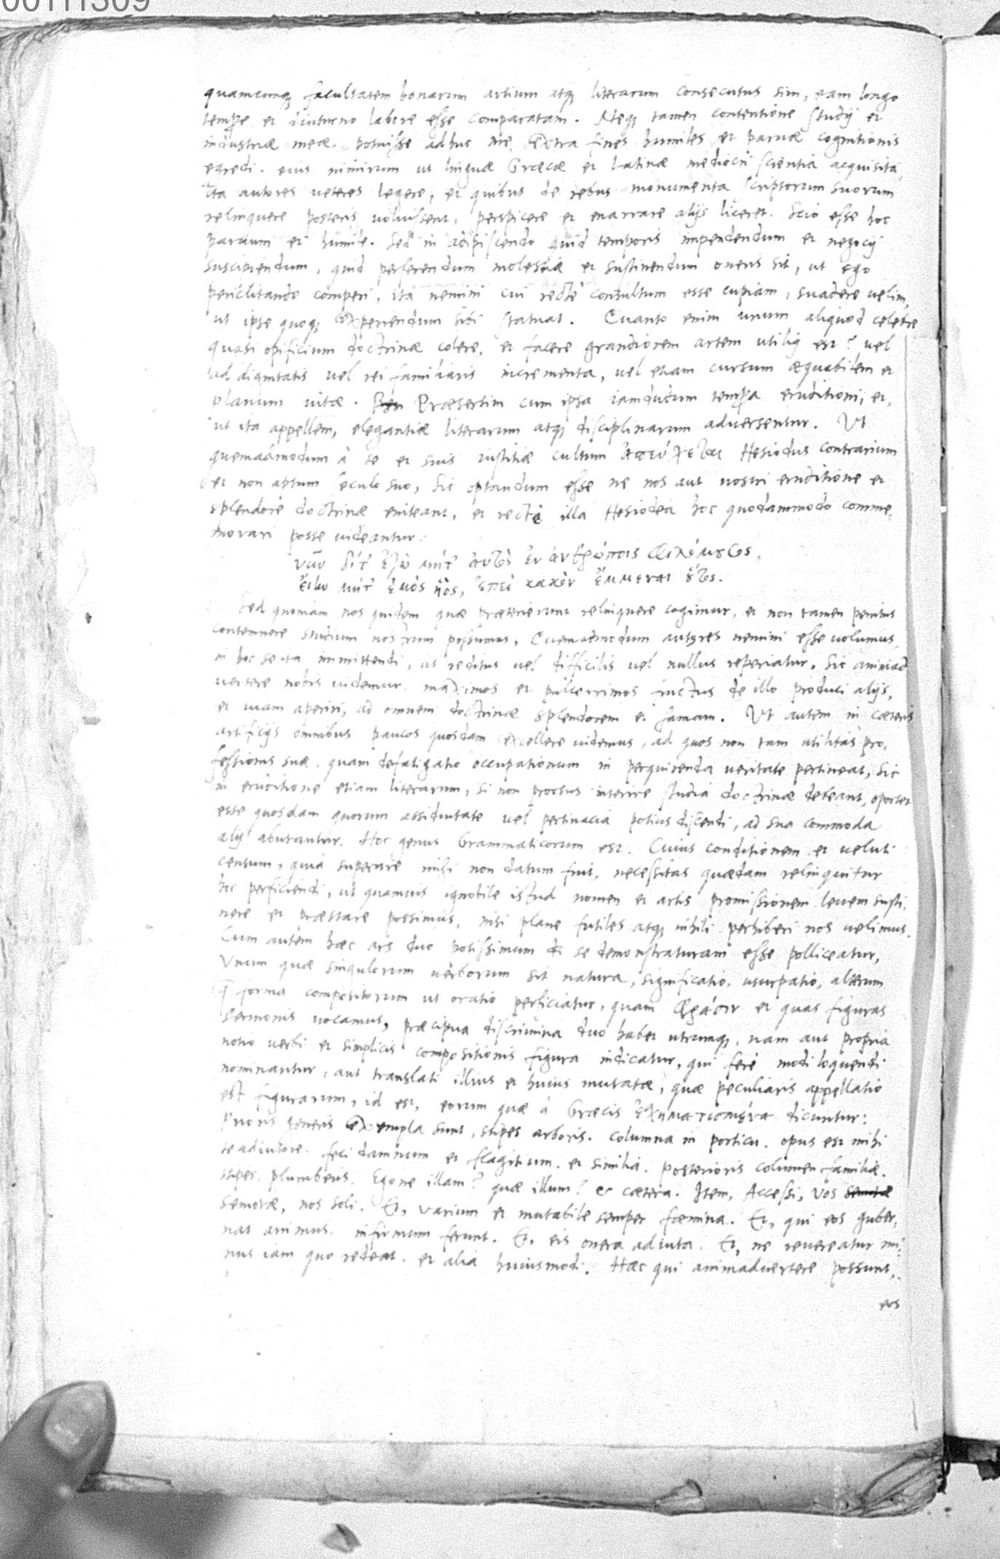 00111309
quamcunq; facultatem bonarum artium atq; literarum consecutus sim, eam longo
tempore et diuturno labore esse comparatam. Neq; tamen contentione studij et
industriæ meæ potuisse adhuc me extra fines humiles et paruæ cognitionis
egredi. eius nimirum ut linguæ Græcæ et Latinæ mediocri scientia acquisita,
ita autores veteres legere, et quibus de rebus monumenta scriptorum suorum
relinquere posteris voluissent, perspicere et enarrare alijs liceret. Scio esse hoc
paruum et humile. Sed in adipiscendo quid temporis impendendum et negocij
suscipiendum, quid perferendum molestiæ et sustinendum oneris sit, ut ego
periclitando comperi, ita nemini cui recte consultum esse cupiam, suadere velim,
ut ipse quoq; experiendum sibi statuat. Quanto enim unum aliquod celebre
quasi opificium doctrinæ colere, et facere grandiorem artem utilius est? vel
ad dignitatis vel rei familiaris incrementa, vel etiam cursum æquabilem et
planum vitæ. Præsertim cum ipsa iamdudum tempora eruditioni, et,
ut ita appellem, elegantiæ literarum atq; disciplinarum aduersentur. Ut
quemadmodum à se et suis iustitiæ cultum ἀπεύχεται Hesiodus contrarium
et non aptum seculo suo, sic optandum esse ne nos aut nostri eruditione et
splendore doctrinæ eniteant, et recte illa Hesiodea hoc quodammodo comme,
morari posse videantur.
νῦν δὲ ἐγὼ μήτ' αὐτὸς ἐν ἀνθρώποις φιλόμουσος,
εἴην μήτ' ἐμὸς υἱός, ἐπεὶ κακὸν ἔμμεναι οὕτως.
Sed quoniam nos quidem quæ præterierunt relinquere cogimur, et non tamen penitus
contemnere studium nostrum possumus, Quemadmodum autores nemini esse volumus
in hoc se ita immittendi, ut reditus vel difficilis vel nullus reperiatur, Sic animad
vertere nobis videmur maximos et pulcerrimos fructus de illo produci alijs,
et viam aperiri, ad omnem doctrinæ splendorem et famam. Ut autem in cæteris
artificijs omnibus paucos quosdam excellere videmus, ad quos non tam utilitas pro,
fessionis suæ quam defatigatio occupationum in perquirenda veritate pertineat, Sic
in eruditione etiam literarum, si non prorsus interire studia doctrinæ debeant, oportet
esse quosdam quorum assiduitate vel pertinacia potius discendi, ad sua commoda
alij abutantur. Hoc genus Grammaticorum est. Cuius conditionem et veluti
censum, quia superare mihi non datum fuit, necessitas quædam relinquitur
hoc perficiendi, ut quamuis ignobile istud nomen et artis promissionem leuem susti,
nere et præstare possimus, nisi plane futiles atq; nihili perhiberi nos velimus.
Cum autem hæc ars duo potissimum de se demonstraturam esse polliceatur,
Unum quæ singulorum verborum sit natura, significatio, usurpatio, alterum
quæ forma compositorum ut oratio perficiatur, quam φράσιν et quas figuras
sermonis vocamus, præcipua discrimina duo habet utrunq;, nam aut propria
notio verbi et simplicis compositionis figura indicatur, qui fere modi loquendi
nominantur, aut translati illius et huius mutatæ, quæ peculiaris appellatio
est figurarum, id est, eorum quæ à Græcis ἐσχηματισμένα dicuntur.
Prioris generis exempla sunt, stipes arboris. columna in porticu. opus est mihi
te adiutore. feci damnum et flagitium. et similia. Posterioris columen familiæ.
stipes, plumbeus. Egone illam? quæ illum? et cætera. Item, Accessi, vos
semotæ, nos soli. Et, varium et mutabile semper fœmina. Et, qui eos guber,
nat animus infirmum ferunt. Et, eis onera adiuta. Et, ne reuereatur mi,
nus iam quo redeat. et alia huiusmodi. Hæc qui animaduertere possunt,
eos